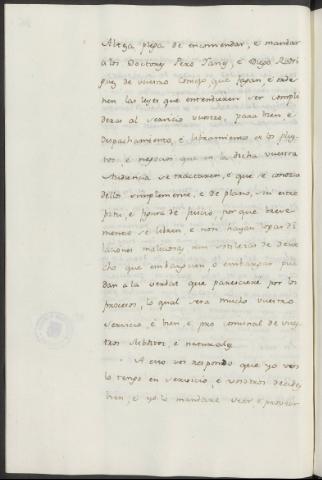 Alteza plega de encomendar, é mandar
a los Doctores Pero Yañez, é Diego Rodri
guez de vuestro Consejo que fagan, é orde
nen las leyes que entendieren ser complí
deras al servicio vuestro, para bien, é
despachamiento, é libramiento de los pley
tos, é negocios que en la dicha vuestra
Audiencia se tractaren, é que se conosca
dello simplemente, é de plano, sin estre
pitu, é figura de juicio, por que breve
mente se libren, é non hayan logar di
laciones maliciosas, nin sotileza de dere
cho que embarguen, o embargar pue
dan a la verdat que paresciere por los
procesos, lo qual sera mucho vuestro
servicio, é bien, é pro comunal de vues
tros subditos, é naturales.
A esto vos respondo que yo vos
lo tengo en servicio, é vosotros decides
bien, é yo lo mandaré veer é proveer